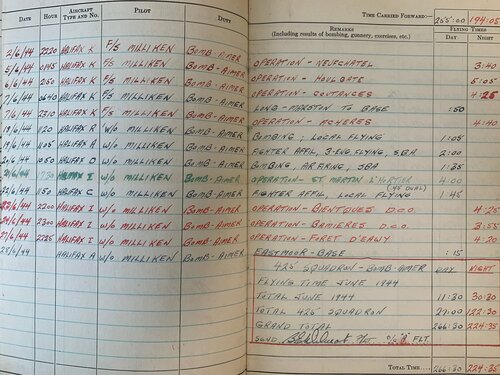 DATE HOUR AIRCRAFT TYPE AND NO. PILOT DUTY
TIME CARRIED FORWARD:— 255:00 194:05
REMARKS (Including results of bombing, gunnery, exercises, etc.) FLYING TIMES DAY NIGHT
2/6/44 2220 HALIFAX K F/S MILLIKEN BOMB-AIMER OPERATION - NEUFCHATEL 3:40
5/6/44 HALIFAX K F/S MILLIKEN BOMB-AIMER OPERATION - HOULGATE 5:05
6/6/44 HALIFAX K F/S MILLIKEN BOMB-AIMER OPERATION - COUTANCES 4:25
7/6/44 0640 HALIFAX K F/S MILLIKEN BOMB-AIMER LONG-MARSTON TO BASE :50
7/6/44 2310 HALIFAX K F/S MILLIKEN BOMB-AIMER OPERATION - ACHERES 4:40
HALIFAX R W/O MILLIKEN BOMB-AIMER BOMBING, LOCAL FLYING 1:05
HALIFAX A W/O MILLIKEN BOMB-AIMER FIGHTER AFFIL, 3-ENG. FLYING, S.B.A. 2:00
HALIFAX D W/O MILLIKEN BOMB-AIMER BOMBING, AIR FIRING, SBA 1:35
HALIFAX I W/O MILLIKEN BOMB-AIMER OPERATION - ST MARTIN L'HORTIER 4:00
HALIFAX C W/O MILLIKEN BOMB-AIMER FIGHTER AFFIL, LOCAL FLYING (:45 DUAL) 1:45
2200 HALIFAX I W/O MILLIKEN BOMB-AIMER OPERATION - BIENTQUES D.C.O. 4:25
2300 HALIFAX I W/O MILLIKEN BOMB-AIMER OPERATION - BAMIERES D.C.O. 3:55
27/6/44 HALIFAX I W/O MILLIKEN BOMB-AIMER OPERATION - FORET D'EAWY 4:20
HALIFAX A W/O MILLIKEN BOMB-AIMER EASTMOOR - BASE :15
SQUADRON - BOMB-AIMER DAY NIGHT
FLYING TIME JUNE 1944
TOTAL JUNE 1944 11:30 30:30
TOTAL SQUADRON 122:30
GRAND TOTAL 266:30 224:35
FLT.
TOTAL TIME 266:30 224:35